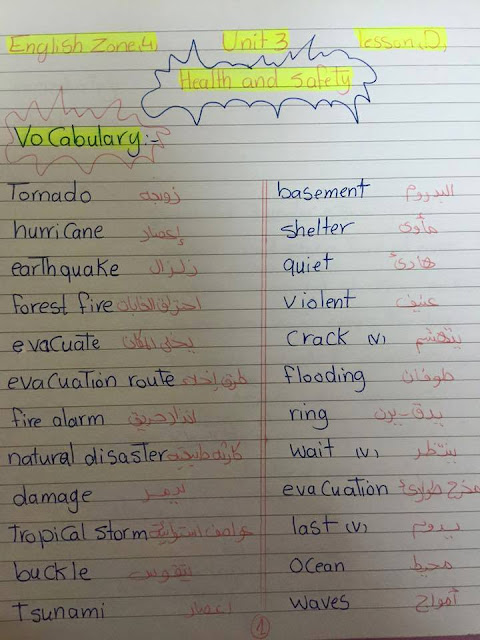 English Zone.4) Unit 3 lesson(D)
Health and Safety
Vocabulary:-
Tornado زوبعه
hurricane إعصار
earthquake زلزال
forest fire احتراق الغابات
evacuate يخلى المكان
evacuation route طرق إخلاء
fire alarm انذار حريق
natural disaster كارثة طبيعية
damage يدمر
Tropical storm عواصف استوائية
buckle يتقوس
Tsunami اعصار
basement البدروم
shelter مأوى
quiet هادئ
violent عنيف
crack (v) يتهشم
flooding طوفان
ring يدق-يرن
wait (v) ينتظر
evacuation مخرج طوارئ
last (v) يدوم
ocean محيط
waves أمواج
1